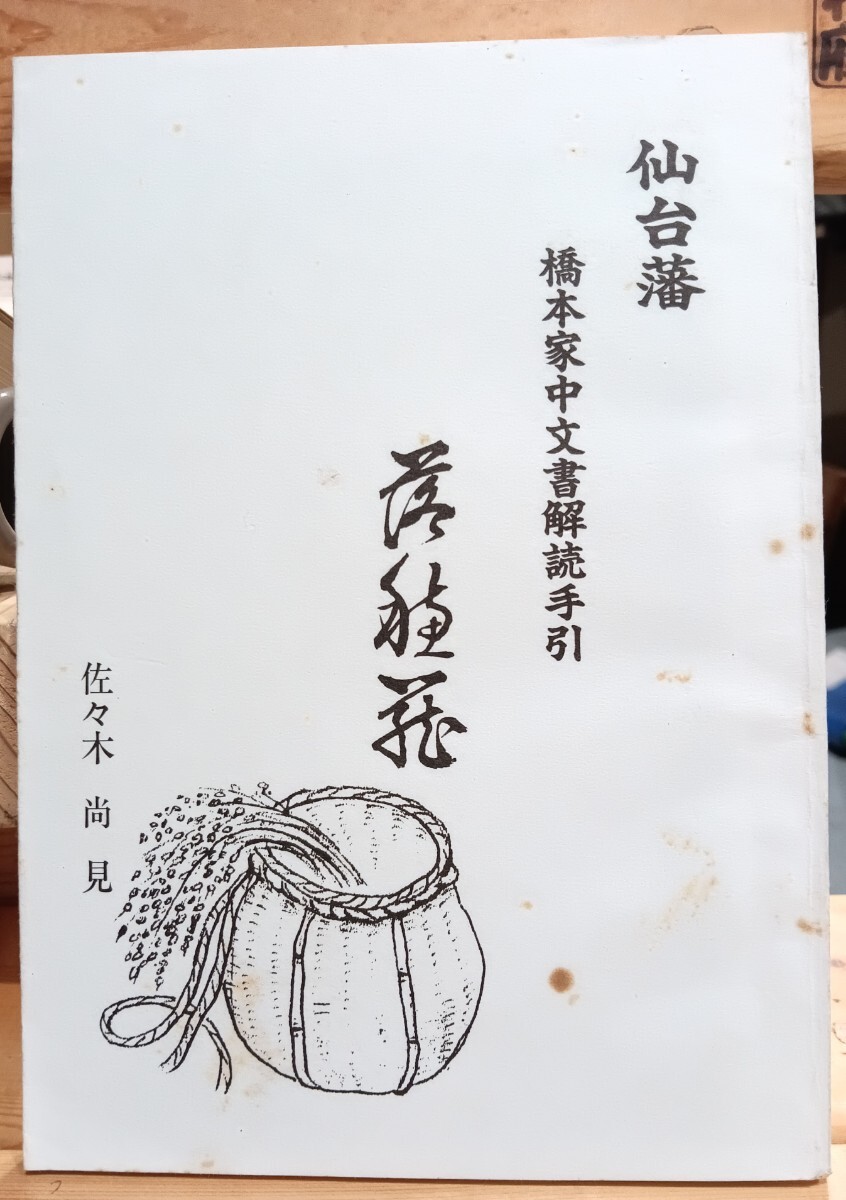 仙台藩
橋本家中文書解読手引
落穂籠
佐々木 尚見